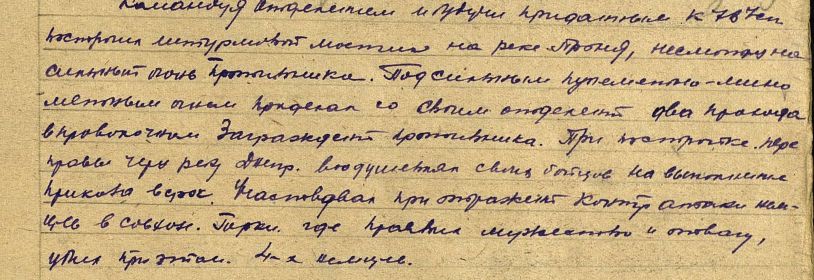 Командуя отделением и будучи приданным к 787 сп
построил штурмовой мостик на реке Проня, несмотря на
сильный огонь противника. Под сильным пулеметно-мино
метным огнем проделал со своим отделент два прохода
в проволочном заграждент противника. При постройке пере
правы через реку Днепр. воодушевлял своих бойцов на выполнение
приказа верх. Участвовал при отражент контр атаки нем-
цев в совхоз. Горки. где проявил мужество и отвагу,
убил при этом. 4-х немцев.